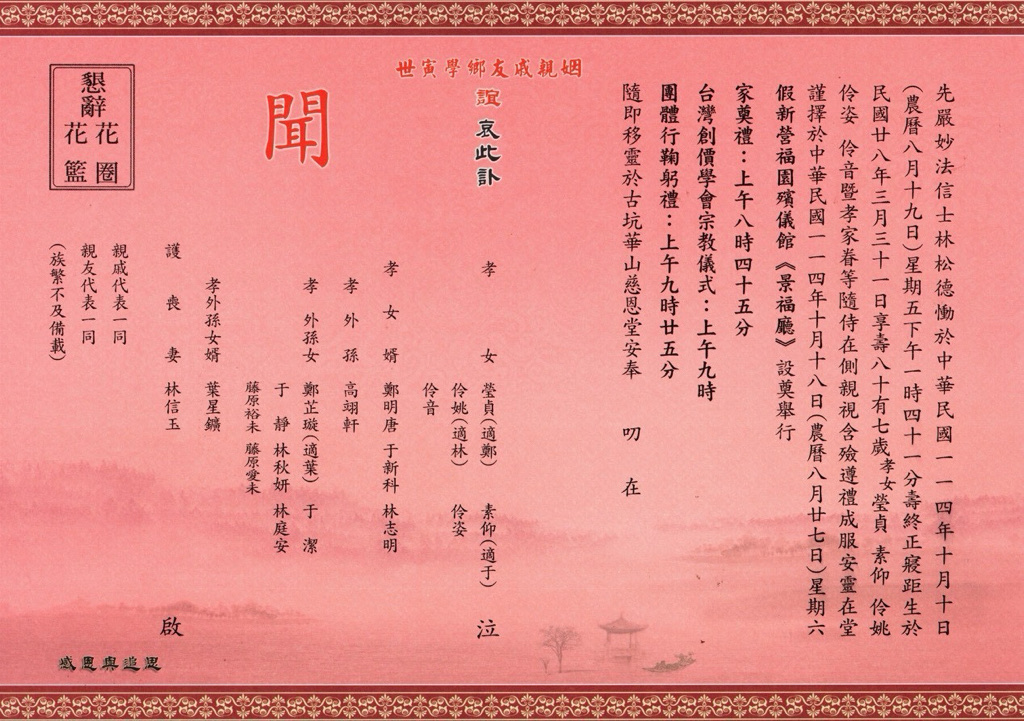 先嚴妙法信士林松德慟於中華民國一一四年十月十日
(農曆八月十九日)星期五下午一時四十一分壽終正寢距生於
民國廿八年三月三十一日享壽八十有七歲孝女瑩貞 素仰 伶姚
伶姿 伶音暨孝家眷等隨侍在側親視含殮遵禮成服安靈在堂
謹擇於中華民國一一四年十月十八日(農曆八月廿七日)星期六
假新營福園殯儀館《景福廳》設奠舉行
家奠禮:上午八時四十五分
台灣創價學會宗教儀式:上午九時
團體行鞠躬禮:上午九時廿五分
隨即移靈於古坑華山慈恩堂安奉 叨 在
姻親戚友鄉學寅世
誼 哀此訃
聞
孝女 瑩貞(適鄭) 素仰(適于) 泣
伶姚(適林) 伶姿
伶音
孝女婿 鄭明唐 于新科 林志明
孝外孫 高翊軒
孝外孫女 鄭芷璇(適葉) 于 潔
于 靜 林秋妍 林庭安
藤原裕未 藤原愛未
孝外孫女婿 葉星鑛
護喪妻 林信玉 啟
親戚代表一同
親友代表一同
(族繁不及備載)
懇辭
花圈
花籃
感恩與追思